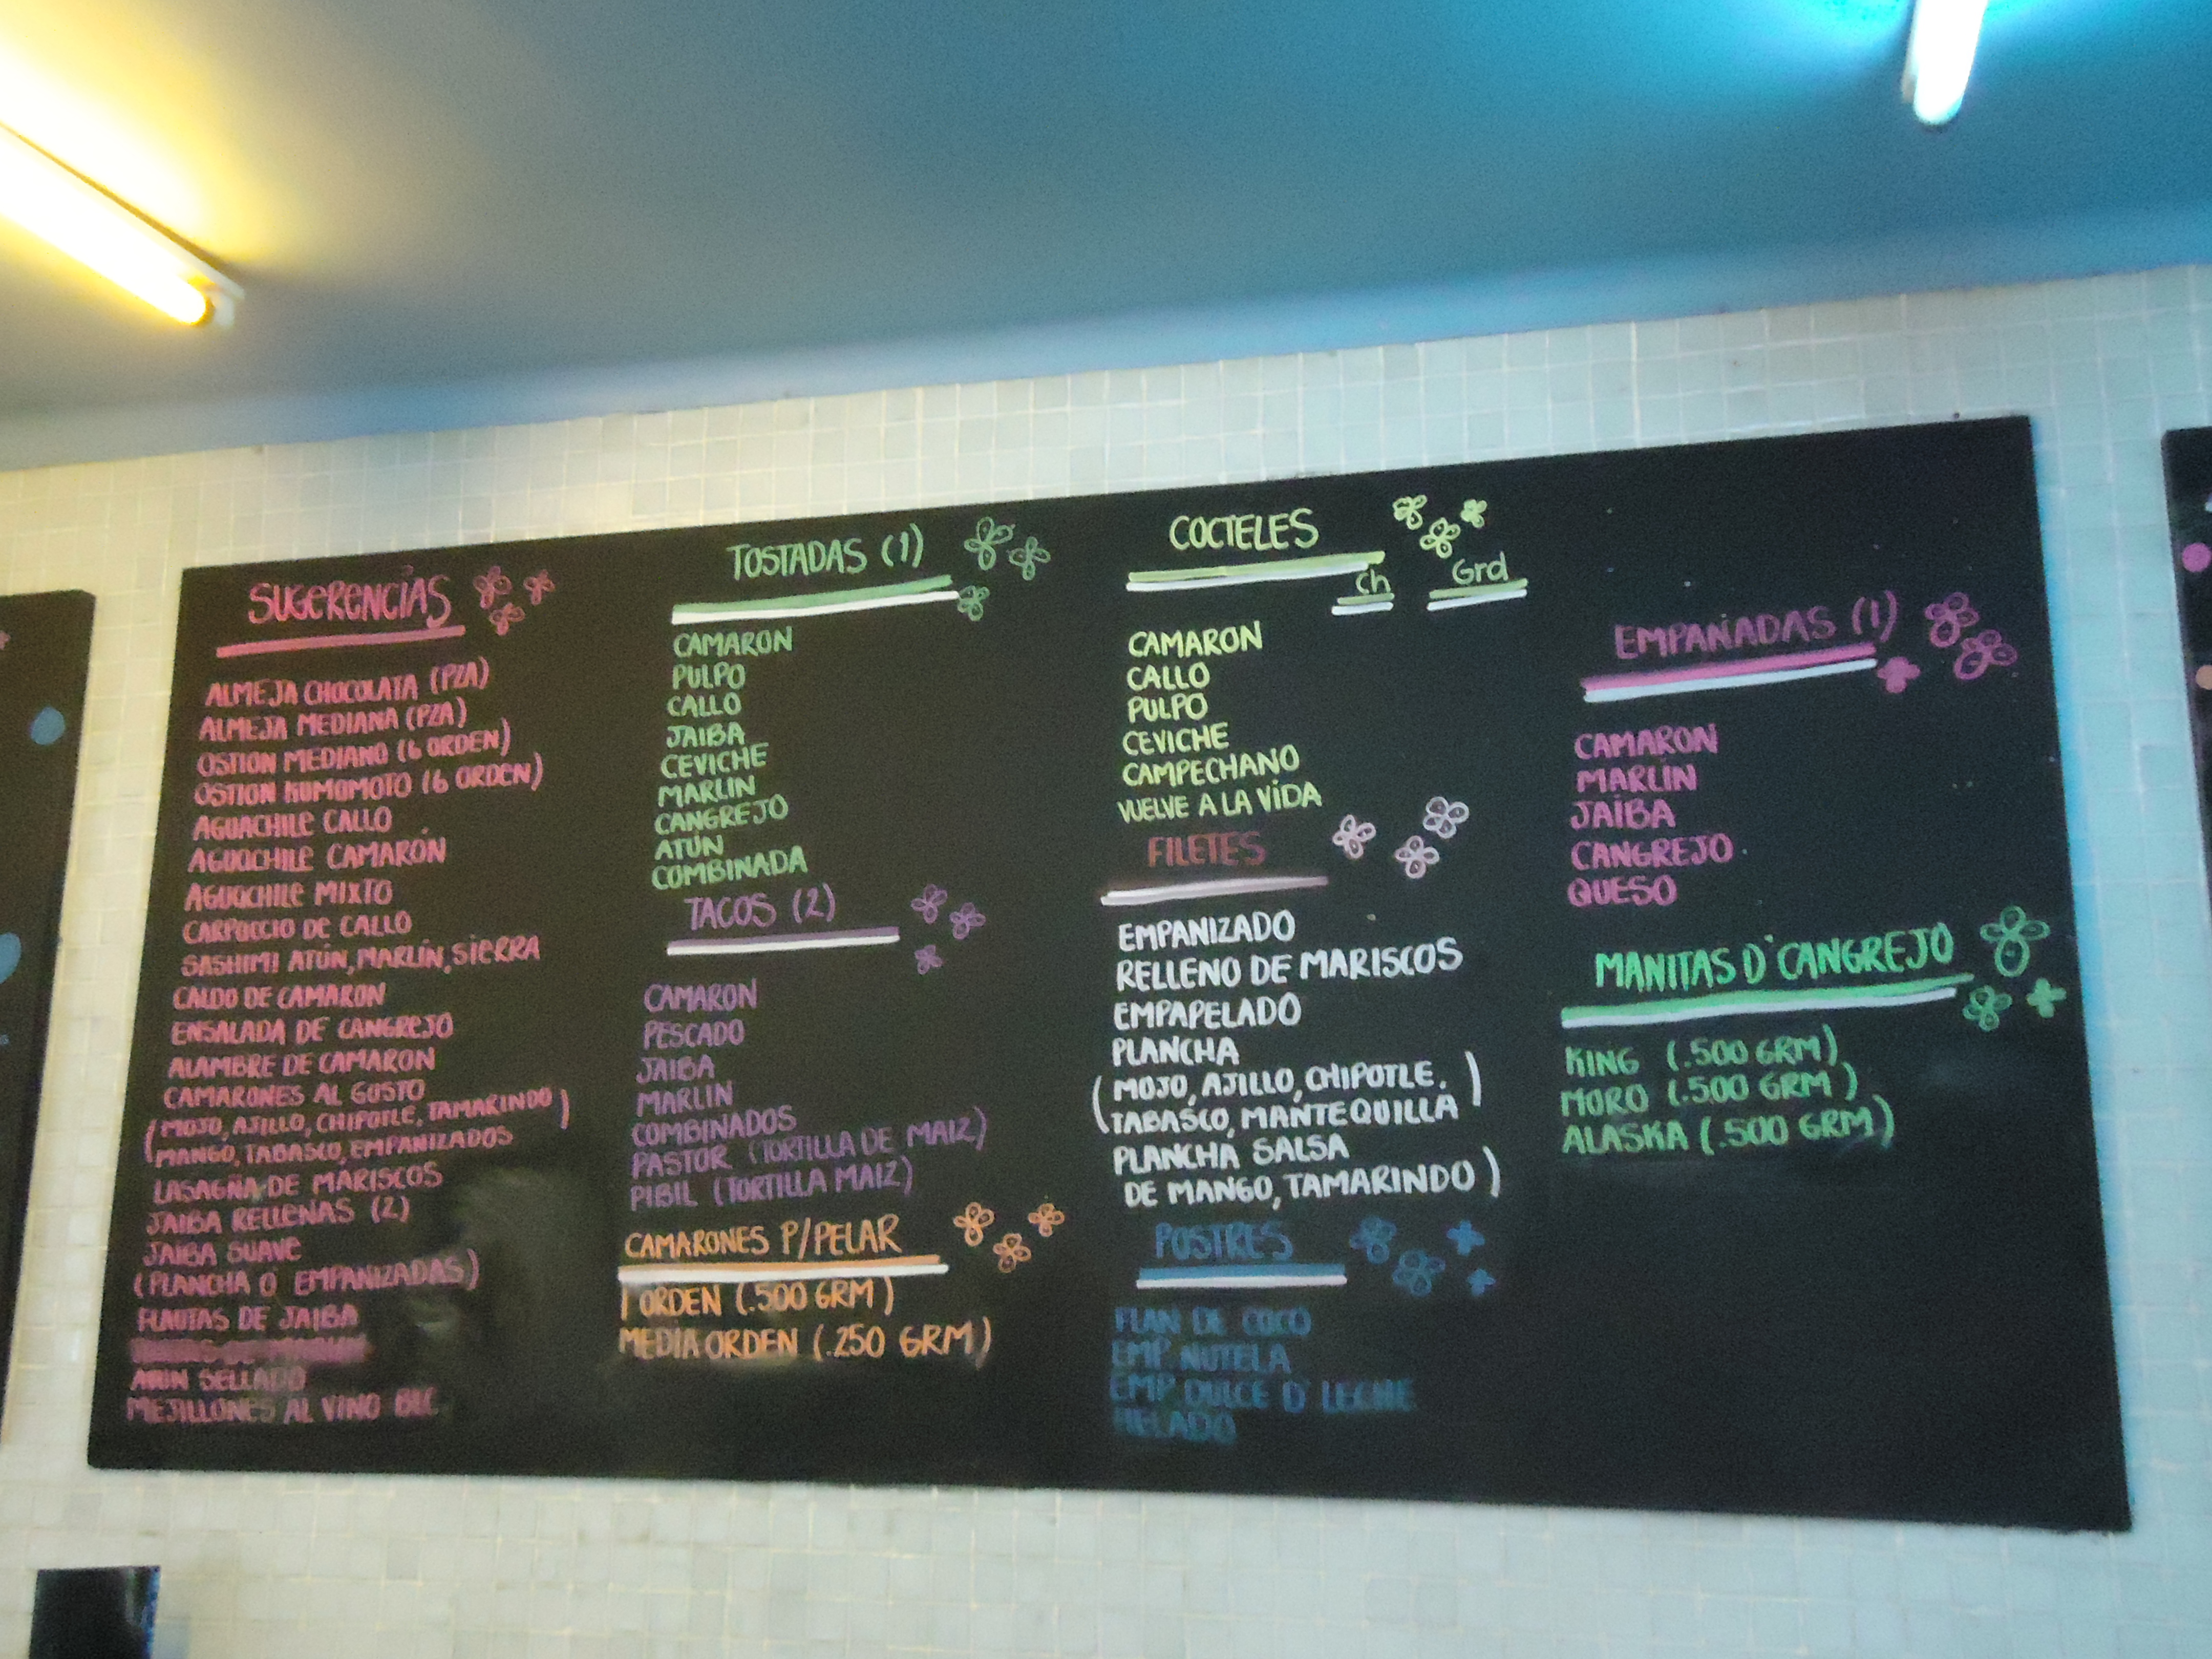 SUGERENCIAS
ALMEJA CHOCOLATA (PZA)
ALMEJA MEDIANA (PZA)
OSTION MEDIANO (6 ORDEN)
OSTION KUMOMOTO (6 ORDEN)
AGUACHILE CALLO
AGUACHILE CAMARÓN
AGUACHILE MIXTO
CARPACCIO DE CALLO
SASHIMI ATÚN, MARLÍN, SIERRA
CALDO DE CAMARON
ENSALADA DE CANGREJO
ALAMBRE DE CAMARON
CAMARONES AL GUSTO
(MOJO, AJILLO, CHIPOTLE, TAMARINDO)
MANGO, TABASCO, EMPANIZADOS
LASAGÑA DE MARISCOS
JAIBA RELLENAS (2)
JAIBA SUAVE
(PLANCHA O EMPANIZADAS)
FLAUTAS DE JAIBA
SELLADO
MEJILLONES AL VINO
TOSTADAS (1)
CAMARON
PULPO
CALLO
JAIBA
CEVICHE
MARLIN
CANGREJO
ATÚN
COMBINADA
TACOS (2)
CAMARON
PESCADO
JAIBA
MARLIN
COMBINADOS
PASTOR (TORTILLA DE MAIZ)
PIBIL (TORTILLA MAIZ)
CAMARONES P/PELAR
1 ORDEN (.500 GRM)
MEDIA ORDEN (.250 GRM)
COCTELES
Ch Grd
CAMARON
CALLO
PULPO
CEVICHE
CAMPECHANO
VUELVE A LA VIDA
FILETES
EMPANIZADO
RELLENO DE MARISCOS
EMPAPELADO
PLANCHA
(MOJO, AJILLO, CHIPOTLE.)
TABASCO, MANTEQUILLA
PLANCHA SALSA
DE MANGO, TAMARINDO)
POSTRES
FLAN DE COCO
EMP. NUTELA
EMP. DULCE D' LECHE
HELADO
EMPAÑADAS (1)
CAMARON
MARLÍN
JAIBA
CANGREJO
QUESO
MANITAS D'CANGREJO
KING (.500 GRM)
MORO (.500 GRM)
ALASKA (.500 GRM)